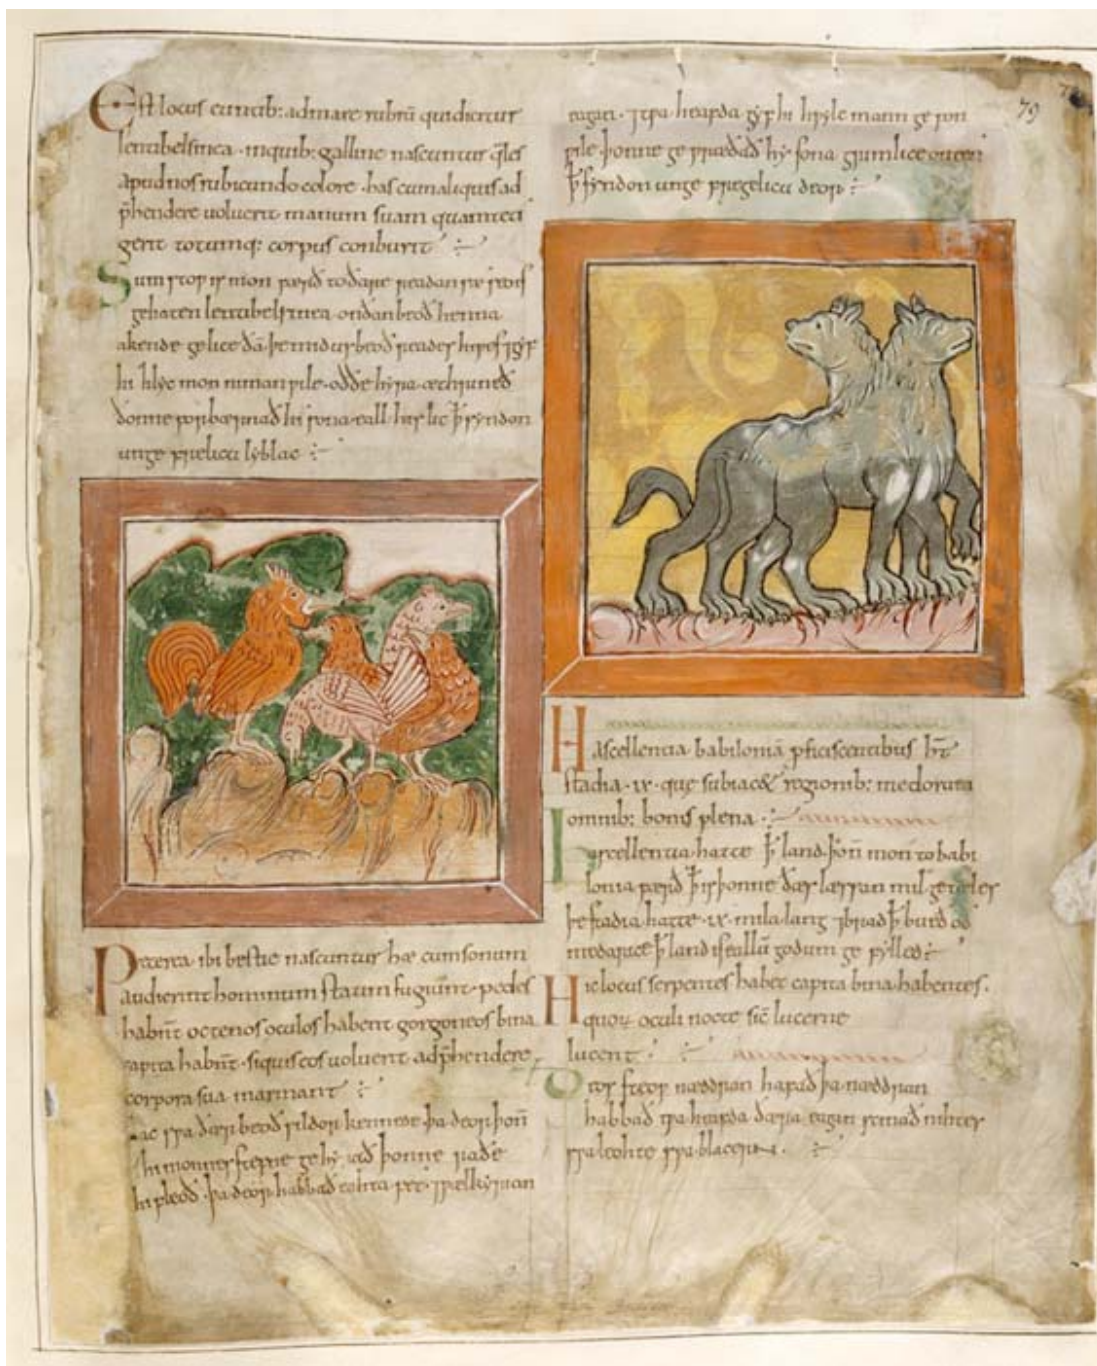 Est locus euntib: ad mare rubrū qui dicitur
lentibelsinea · in quib: galline nascuntur q̄les
apud nos rubicundo colore · has cum aliquis ad
p̄hendere uoluerit manum suam quam teti
gerit totumq: corpus conburit
Sum stoƿ is mon færið to ðare readan sæ seo is
gehaten lentibelsinea · on ðan beoð henna
akende gelice ðā þe mid us beoð reades hiƿes ⁊ gyf
hi hƿylc mon niman ƿile · oððe hyra æthrineð
ðonne forbærnað hi sona eall his lic þ̄ syndon
unge frelicu lyblac
Preterea ibi bestie nascuntur hæ cum sonum
audierint hominum statim fugiunt · pedes
habn̄t octenos oculos habent gorgoneos bina
capita habn̄t · siquis eos uoluerit adp̄hendere
corpora sua marmant
ac sƿa ðær beoð ƿildor kennede þa deor þon̄
hi monnes stefne gehyrað þonne raðe
hi fleoð · þa deor habbað eahta fet · ⁊ ƿælkyrian
eagan · ⁊ tƿa heafda gyf hi hƿylc mann ge fon
ƿile þonne
þ̄ syndon unge fregelicu deor
Hascellentia babiloniā p̄ficiscentibus hn̄t
stadia · ix · quę subiac& regionib: medorum
omnib: bonis plena
Hascellentia hatte þ̄ land þon̄ mon to babi
lonia færð þ̄ is þonne ðæs læssan mil geteles
þe stadia hatte · ix · mila lang ⁊ brad þ̄ buhð od
meda rice þ̄ land is eallū godum ge fylled
Hic locus serpentes habet capita bina habentes ·
quoꝝ oculi nocte sic̄ lucerne
lucent
stoƿ næddran hafað þa næddran
habbað tƿa heafda ðæra eagan scinað nihtes
sƿa leohte sƿa blacern
79